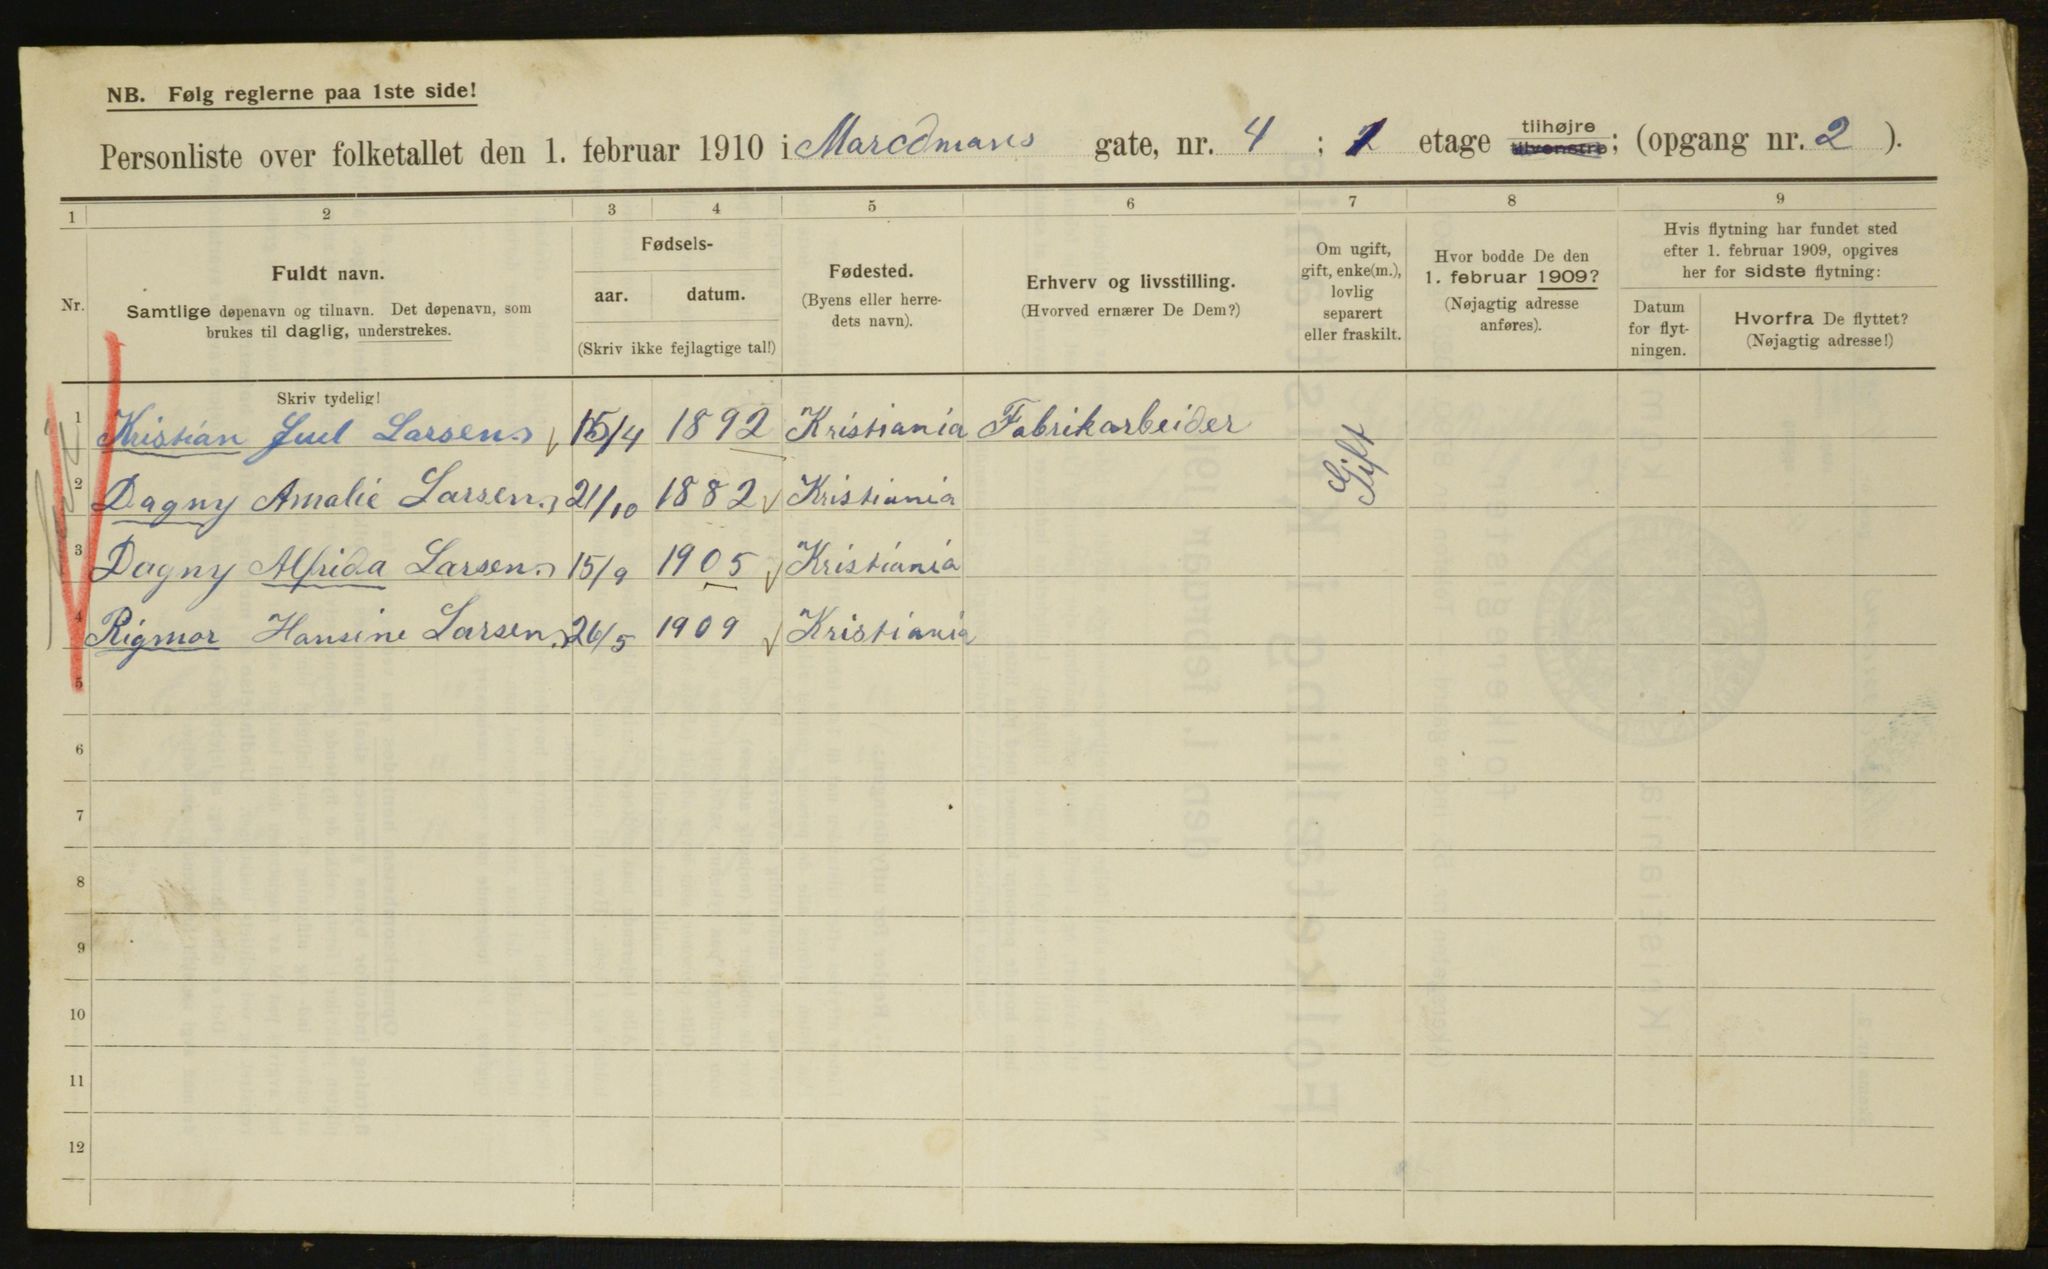 NB. Følg reglerne paa 1ste side!
Personliste over folketallet den 1. februar 1910 i Marcdmans gate, nr. 4 ; 1 etage tilhøjre tilvenstre; (opgang nr. 2 ).
1 2 3 4 5 6 7 8 9
Nr.
Fuldt navn.
Samtlige døpenavn og tilnavn. Det døpenavn, som
brukes til daglig, understrekes.
Fødsels-
aar. datum.
(Skriv ikke fejlagtige tal!)
Fødested.
(Byens eller herre-
dets navn).
Erhverv og livsstilling.
(Hvorved ernærer De Dem?)
Om ugift,
gift, enke(m.),
lovlig
separert
eller fraskilt.
Hvor bodde De den
1. februar 1909?
(Nøjagtig adresse
anføres).
Hvis flytning har fundet sted
efter 1. februar 1909, opgives
her for sidste flytning:
Datum
for flyt-
ningen.
Hvorfra De flyttet?
(Nøjagtig adresse!)
Skriv tydelig!
1 Kristian Juel Larsen 15/4 1892 Kristiania Fabrikarbeider Gift
2 Dagny Amalie Larsen 21/10 1882 Kristiania
3 Dagny Alfrida Larsen 15/9 1905 Kristiania
4 Rigmor Hansine Larsen 26/5 1909 Kristiania
5
6
7
8
9
10
11
12